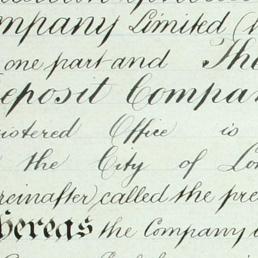 Company Limited (
one part and Th
Deposit Compan
Registered Office is
the City of Lon
hereinafter) called the pre
Whereas the Company